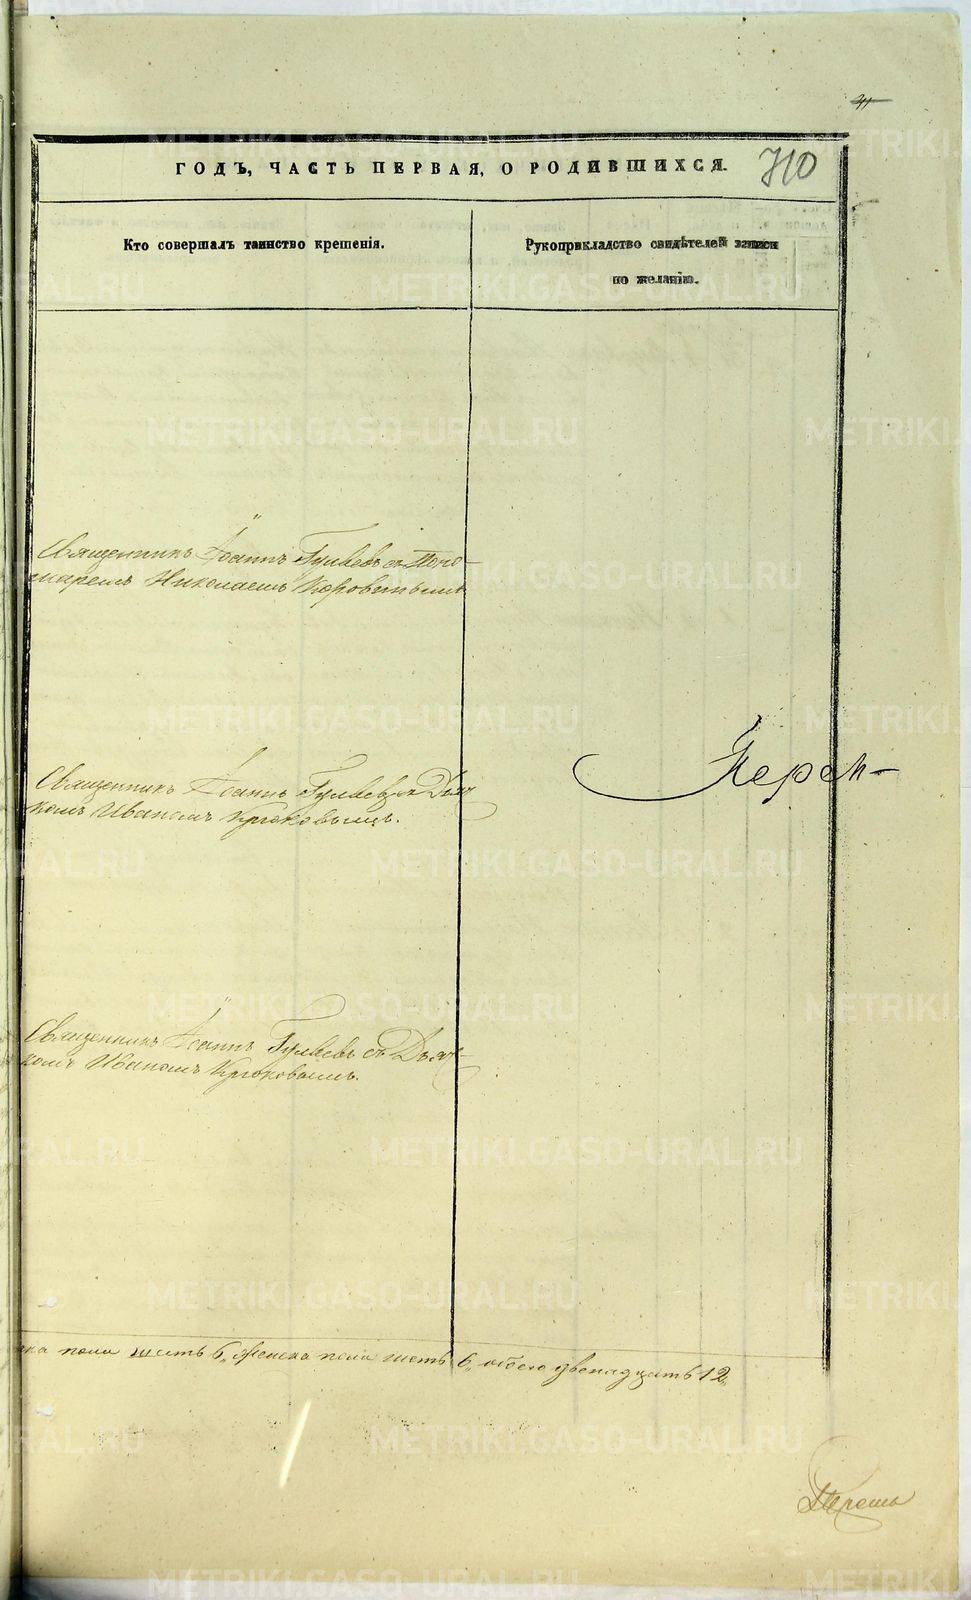 41
ГОДЪ, ЧАСТЬ ПЕРВАЯ, О РОДИВШИХСЯ.
710
Кто совершалъ таинство крещенія.
Рукоприкладство свидѣтелей записи
по желанію.
Священникъ Іоаннъ Гуляевъ съ Поно-
маремъ Николаемъ Коровинымъ
Священникъ Іоаннъ Гуляевъ съ Дьяч
комъ Иваномъ Крюковымъ.
Перем-
Священникъ Іоаннъ Гуляевъ съ Дьяч-
комъ Иваномъ Крюковымъ.
ска пола шесть 6, женска пола шесть 6, обоего двенадцать 12,
METRIKI.GASO-URAL.RU